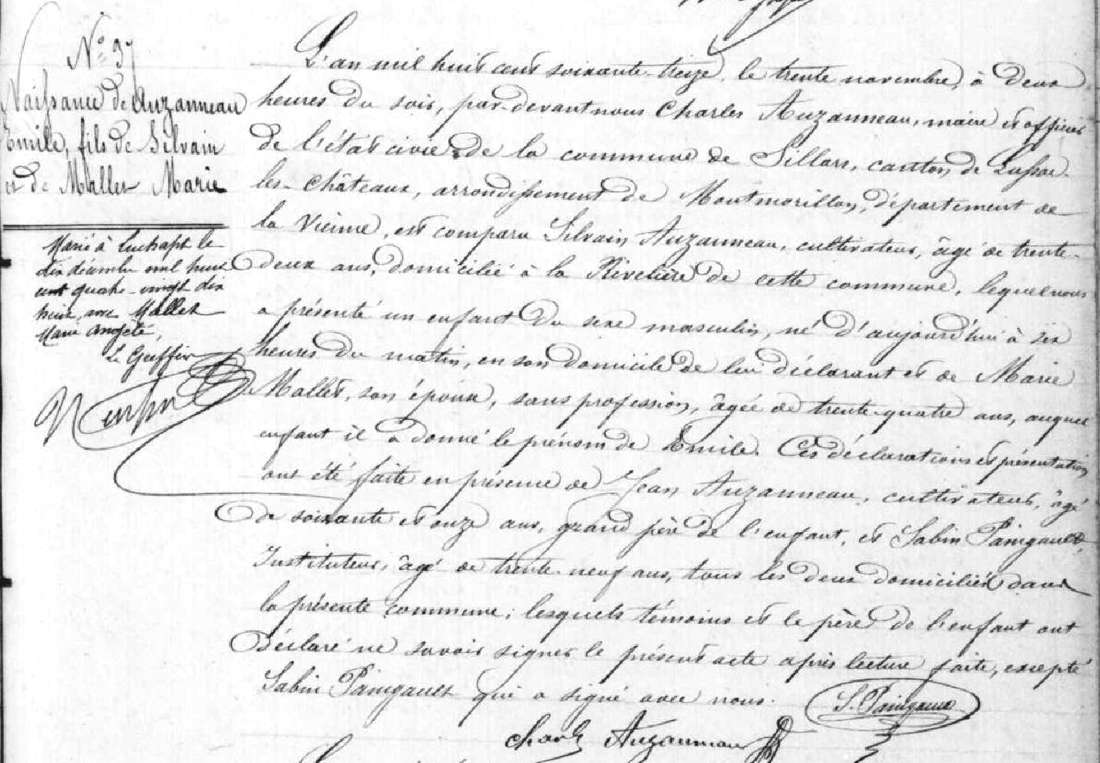 N° 37
Naissance de Auzanneau
Emile, fils de Silvain
et de Mallet Marie
Marié à Luchapt le
dix décembre mil huit
cent quatre-vingt dix
huit, avec Mallet
Marie Angèle,
L. Greffier
L'an mil huit cent soixante-treize, le trente novembre, à deux
heures du soir, par-devant nous Charles Auzanneau, maire et officier
de l'état civil de la commune de Sillars, canton de Lussac-
les-Châteaux, arrondissement de Montmorillon, département de
la Vienne, est comparu Silvain Auzanneau, cultivateur, âgé de trente-
deux ans, domicilié à la Rivetière de cette commune, lequel nous
a présenté un enfant du sexe masculin, né d'aujourd'hui à six
heures du matin, en son domicile de lui déclarant et de Marie
Mallet, son épouse, sans profession, âgée de trente-quatre ans, auquel
enfant il a donné le prénom de Emile. Ces déclarations et présentation
ont été faite en présence de Jean Auzanneau, cultivateur, âgé
de soixante et onze ans, grand père de l'enfant, et Sabin Painigault,
Instituteur, âgé de trente-neuf ans, tous les deux domiciliés dans
la présente commune; lesquels témoins et le père de l'enfant ont
déclaré ne savoir signer le présent acte après lecture faite, excepté
Sabin Painigault qui a signé avec nous.
S. Painigault
Charles Auzanneau